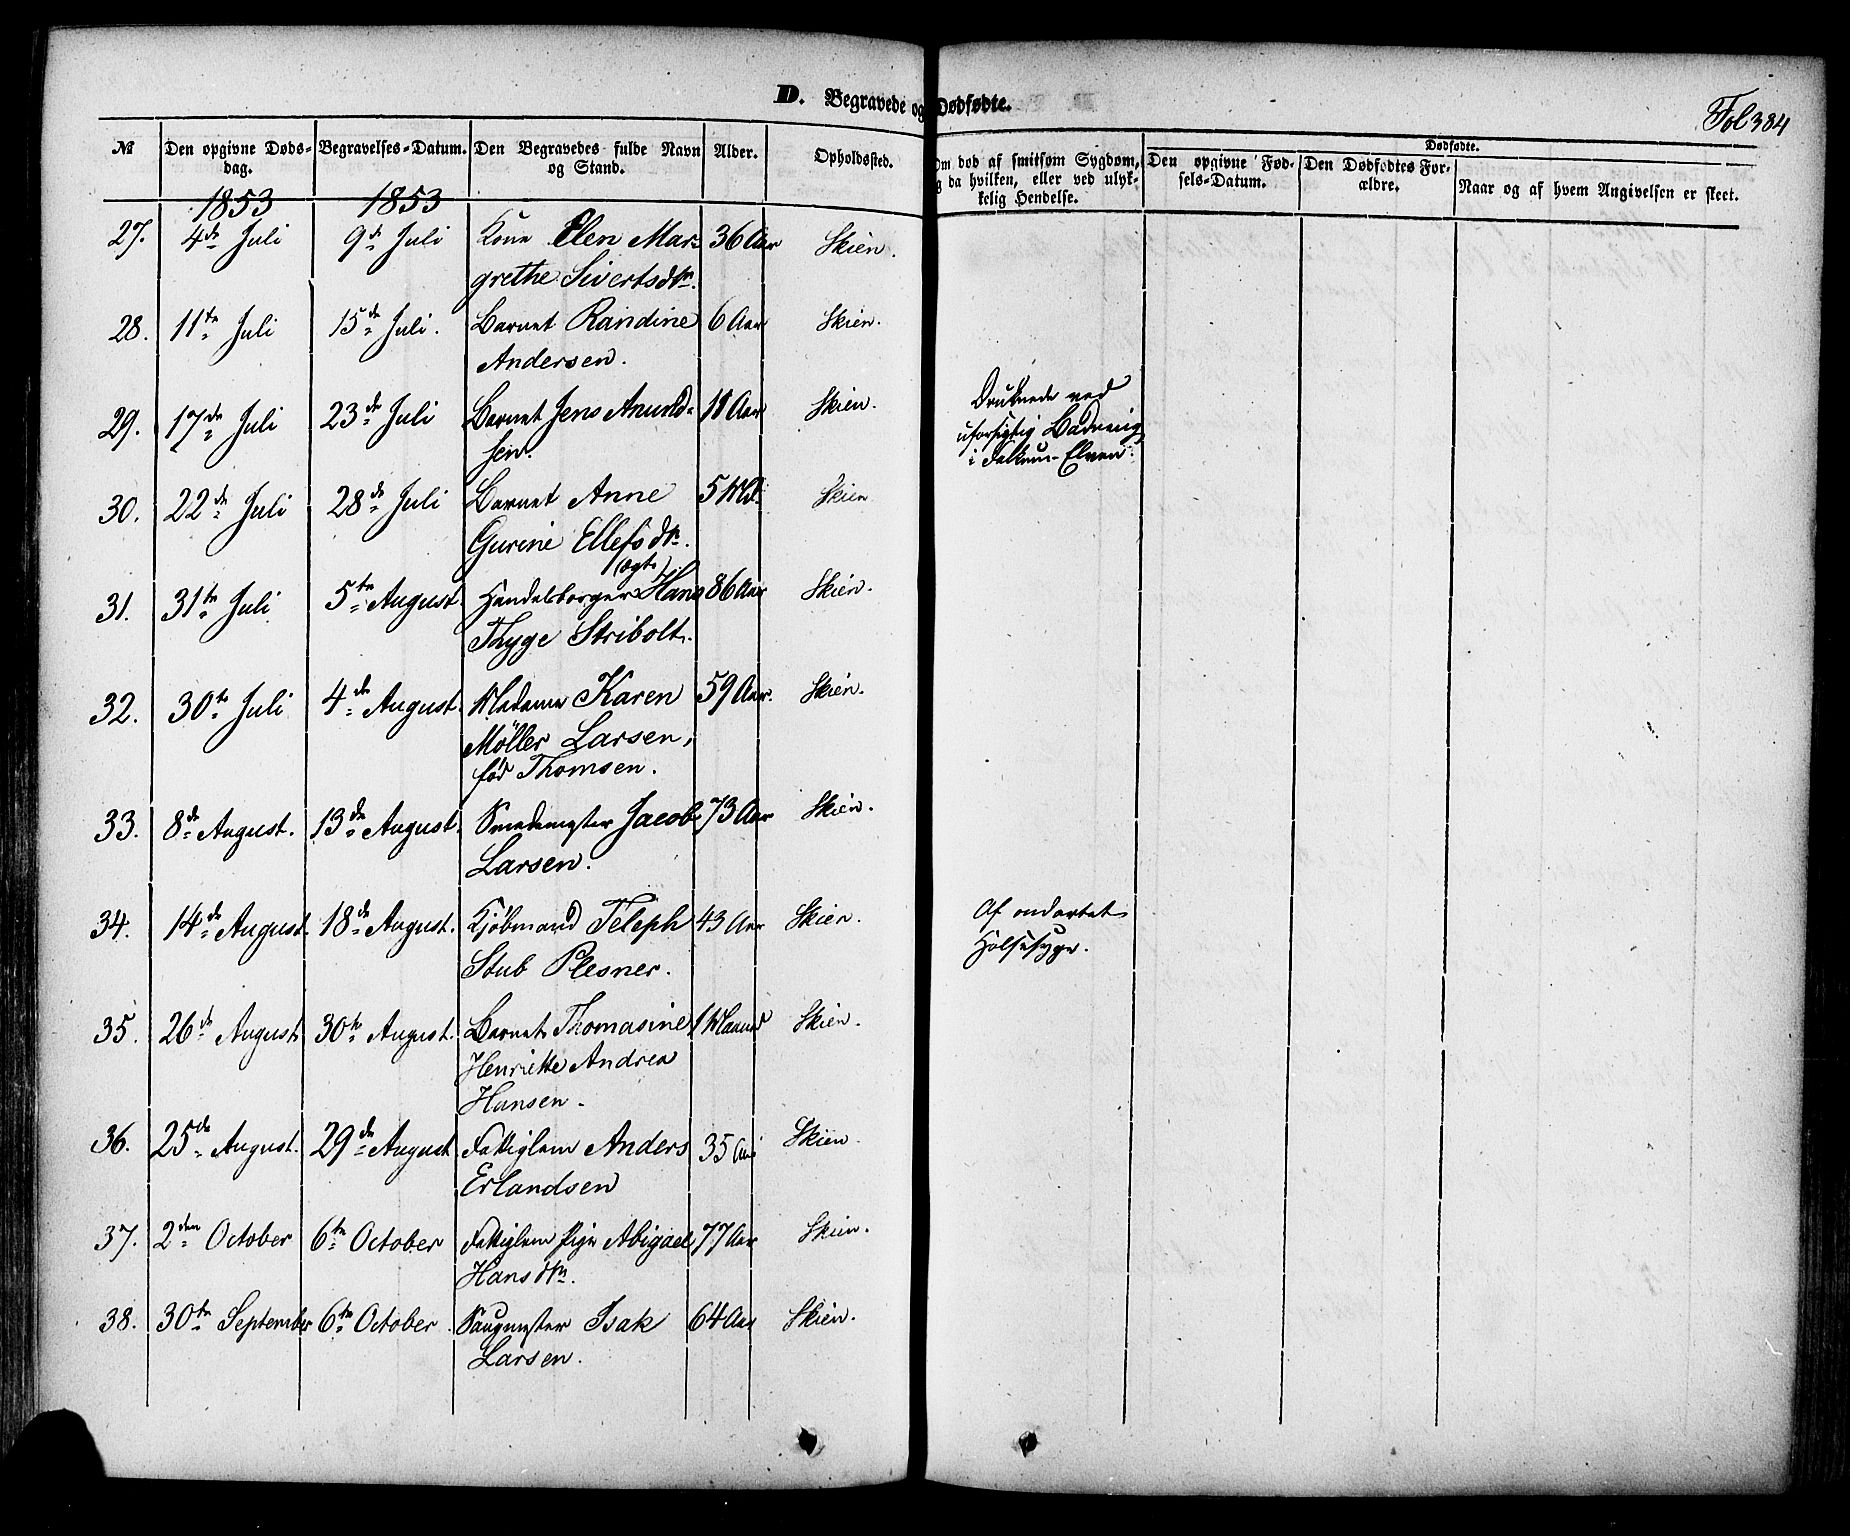 D. Begravede og Dødfødte.
Fol 384
No
Den opgivne Døds-
dag.
Begravelses-Datum.
Den Begravedes fulde Navn
og Stand.
Alder.
Opholdssted.
Om død af smitsom Sygdom,
og da hvilken, eller ved ulyk-
kelig Hendelse.
Dødfødte.
Den opgivne Fød-
sels-Datum.
Den Dødfødtes For-
ældre.
Naar og af hvem Angivelsen er skeet.
1853 1853
27. 4de Juli 9de Juli Kone Elen Mar- 36 Aar Skien.
grethe Sivertsdtr.
28. 11te Juli 15de Juli. Barnet Randine 6 Aar Skien.
Andersen.
29. 17de Juli 23de Juli Barnet Jens Amund- 11 Aar Skien. Druknede ved
sen. uforsigtig Badning
i Falkum-Elven.
30. 22de Juli 28de Juli Barnet Anne 5 Md. Skien
Gurine Ellefsdtr.
(ægte)
31. 31te Juli 5te August Handelsborger Hans 86 Aar Skien.
Thyge Stribolt.
32. 30te Juli 4de August. Madame Karen 59 Aar. Skien.
Møller Larsen,
fød Thomsen.
33. 8de August. 13de August. Smedemester Jacob 73 Aar Skien.
Larsen.
34. 14de August. 18de August. Kjøbmand Teleph 43 Aar Skien. Af ondartet
Stub Plesner. Halssyge.
35. 26de August 30te August. Barnet Thomasine 1 Maaned Skien.
Henriette Andrea
Hansen.
36. 25de August. 29de August Fattiglem Anders 35 Aar Skien.
Erlandsen
37. 2den October 6te October Fattiglem Pige Abigael 77 Aar Skien.
Hansdtr.
38. 30te September 6te October. Saugmester Isak 64 Aar Skien.
Larsen.